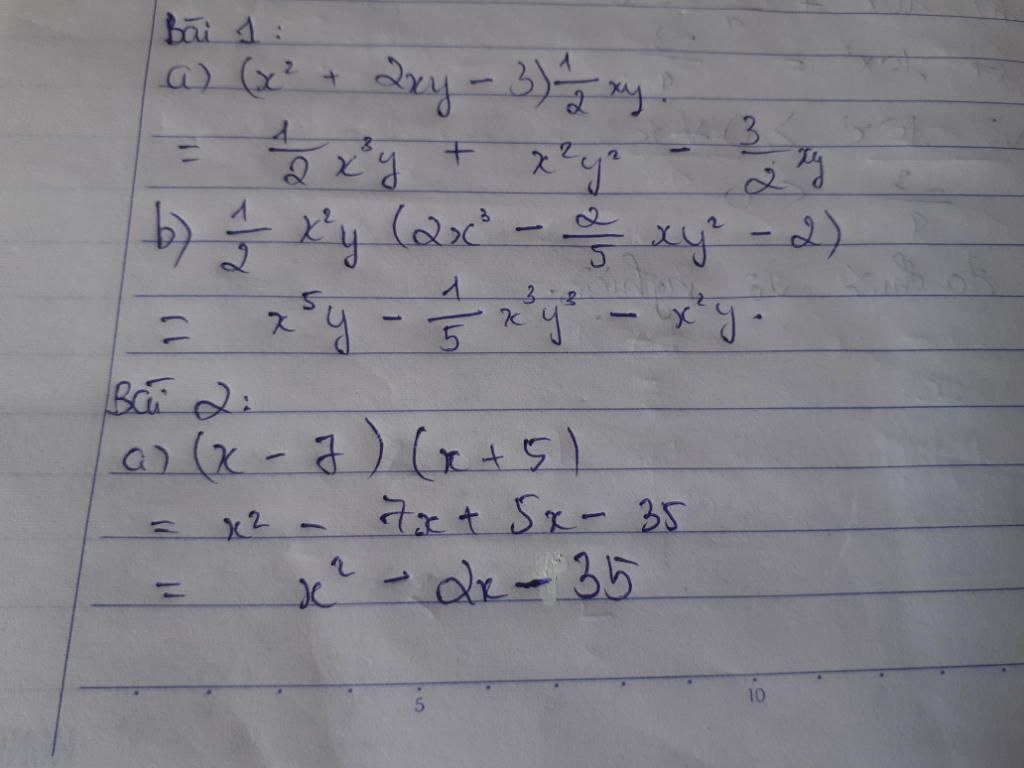 Bài 1:
a) (x² + 2xy - 3) 1/2 xy.
= 1/2 x³y + x²y² - 3/2 xy
b) 1/2 x²y (2x³ - 2/5 xy² - 2)
= x⁵y - 1/5 x³y³ - x²y.
Bài 2:
a) (x - 7) (x + 5)
= x² - 7x + 5x - 35
= x² - 2x - 35
5 10